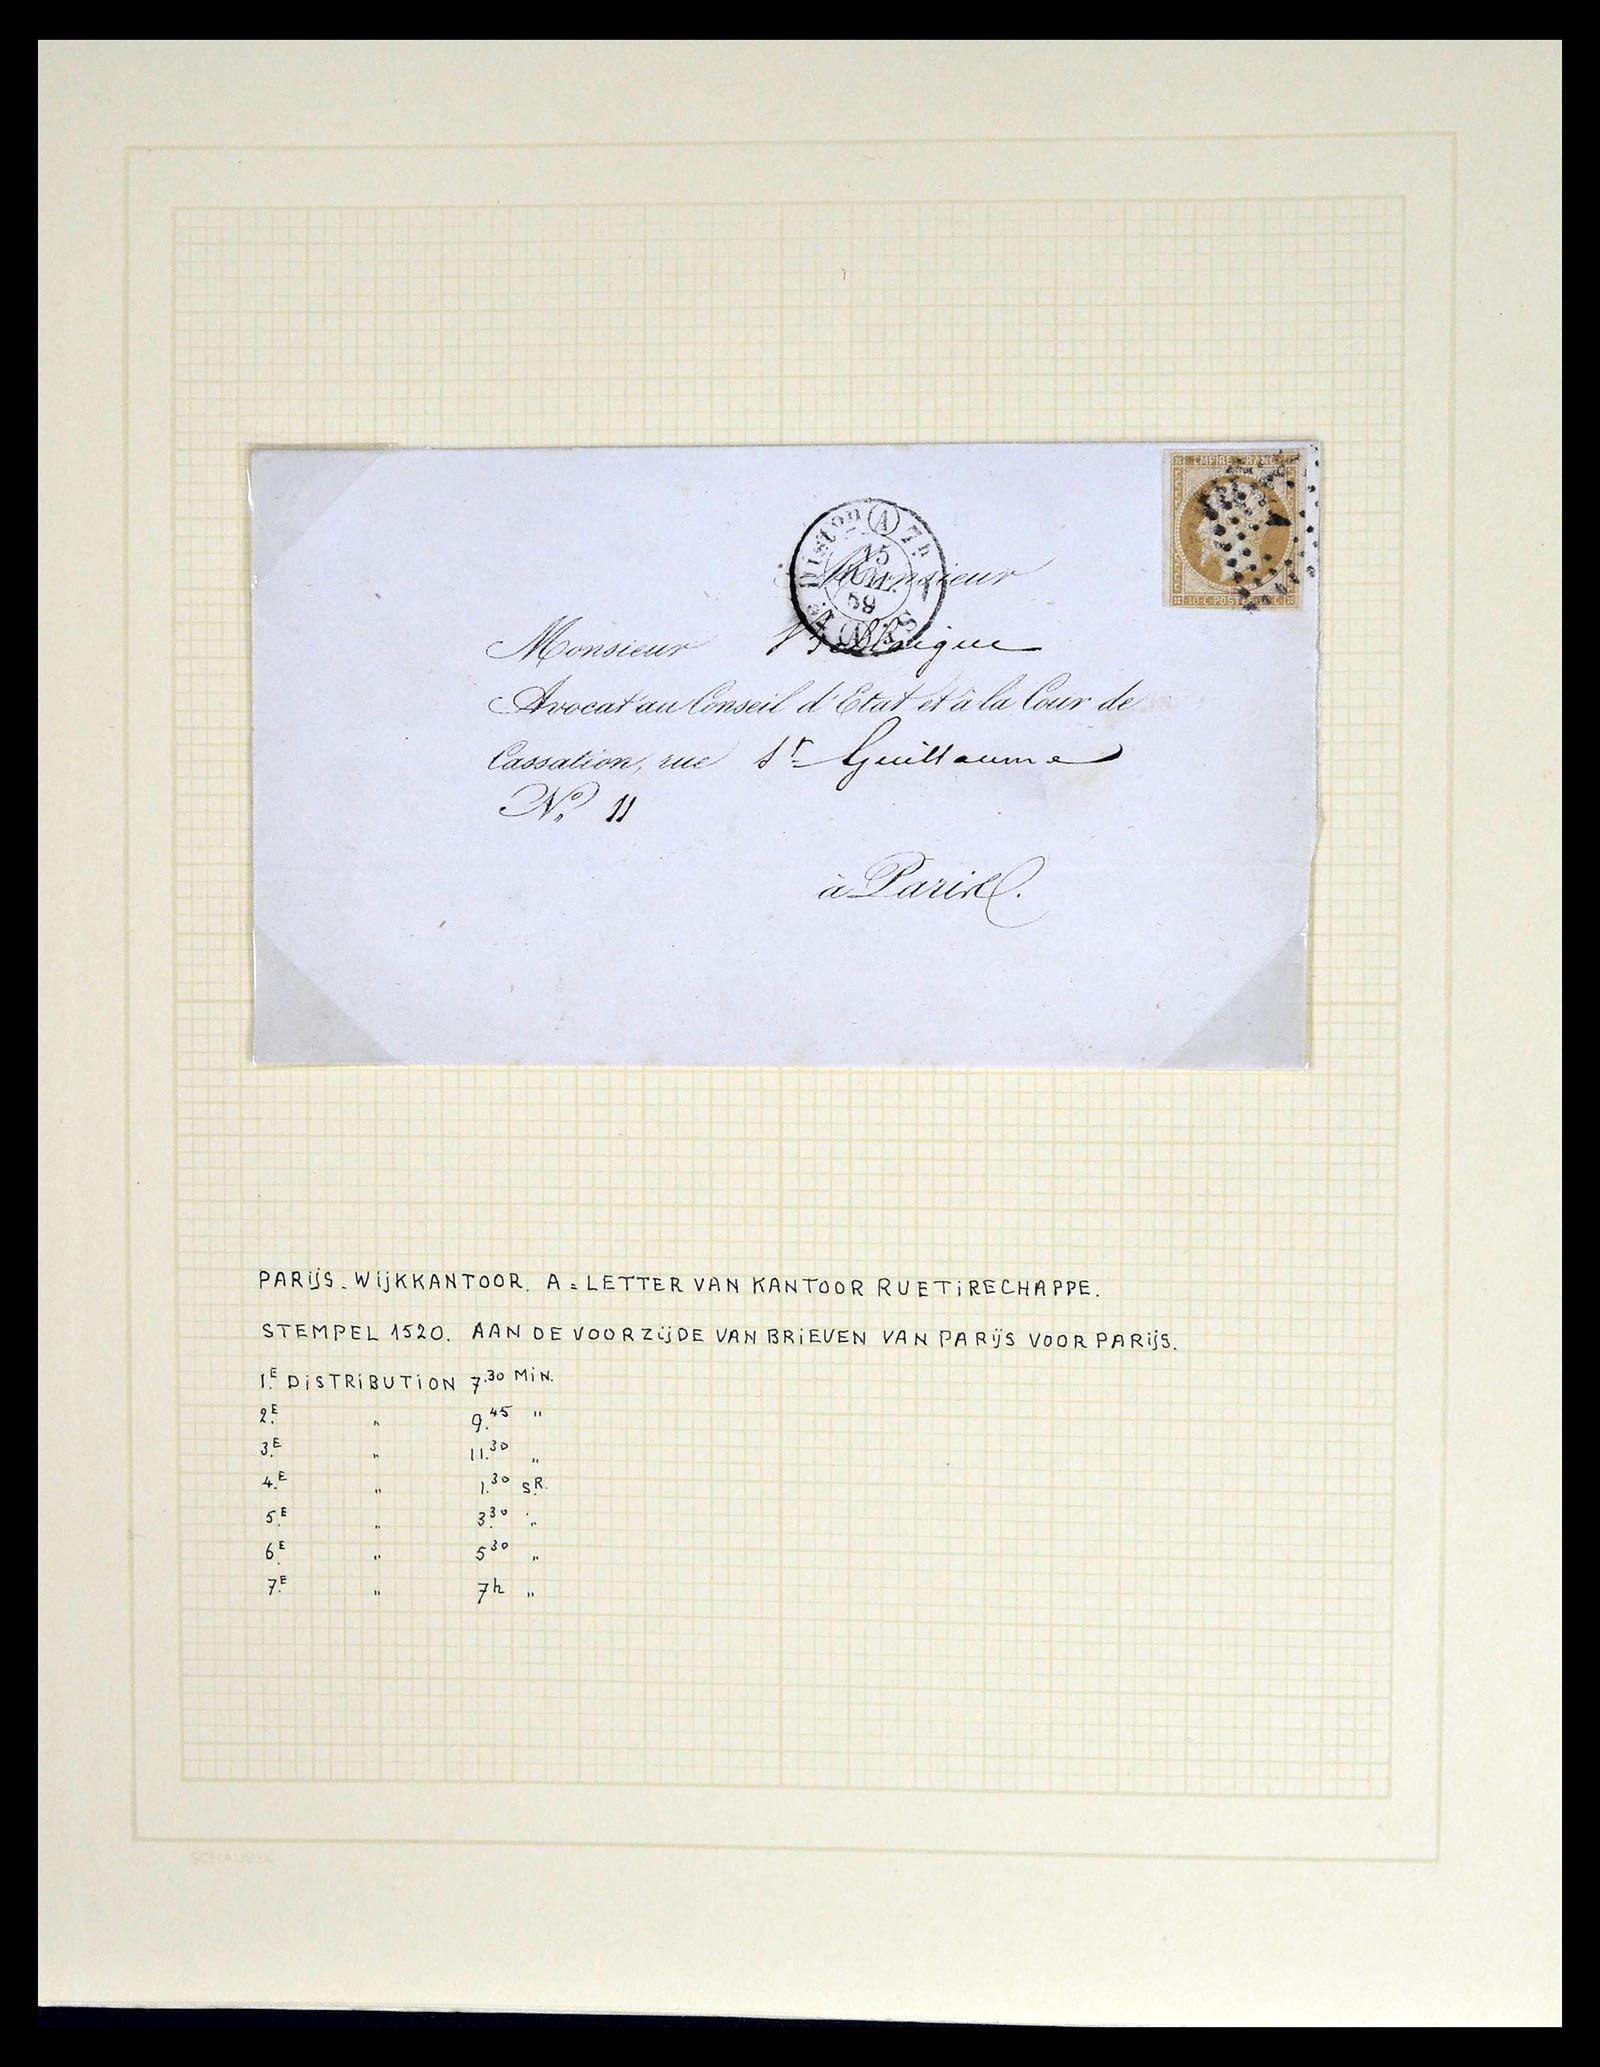 EMPIRE FRANC
10 C. POSTES 10 C.
Diston A 7h
15
59
Monsieur
Monsieur
Avocat au Conseil d'Etat et à la Cour de
Cassation, rue St Guillaume
No. 11
à Paris.
PARIJS - WIJKKANTOOR. A = LETTER VAN KANTOOR RUE TIRECHAPPE.
STEMPEL 1520. AAN DE VOORZIJDE VAN BRIEVEN VAN PARIJS VOOR PARIJS.
1.E DISTRIBUTION 7.30 MIN.
2.E " 9.45 "
3.E " 11.30 "
4.E " 1.30 S.R.
5.E " 3.30 "
6.E " 5.30 "
7.E " 7h "
SCHAUBEK